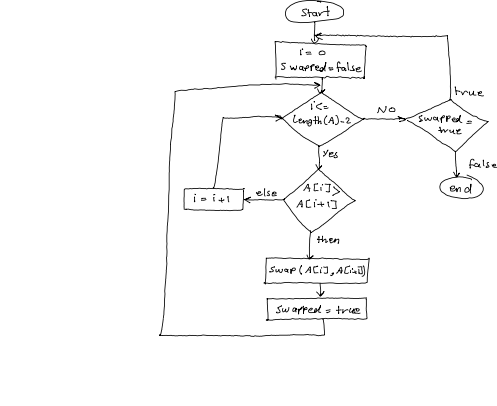 Start
i = 0
swapped=false
i<=
length(A)-2
NO
swapped=
true
true
false
end
yes
A[i]>
A[i+1]
else
i = i+1
then
swap(A[i],A[i+1])
swapped = true